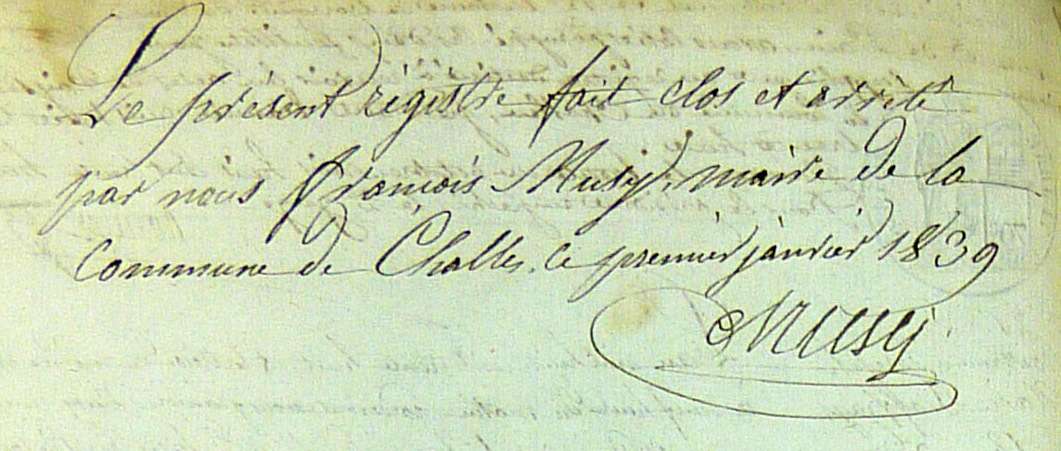 Le présent régistre fait clos et arrêté
par nous François Musy, maire de la
commune de Challes, le premier janvier 1839
Musy